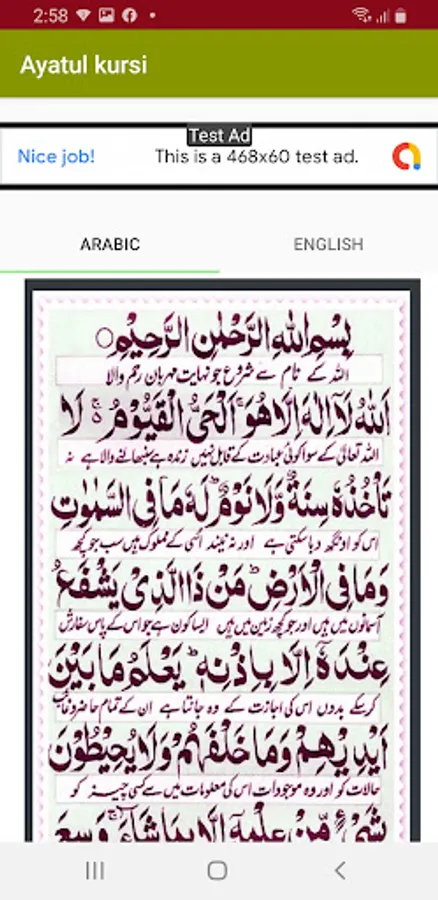 2:58
Ayatul kursi
Test Ad
Nice job! This is a 468x60 test ad.
ARABIC ENGLISH
بِسْمِ اللهِ الرَّحْمٰنِ الرَّحِيْمِ
اللہ کے نام سے شروع جو نہایت مہربان رحم والا
اَللهُ لَآ اِلٰهَ اِلَّا هُوَ ۚ اَلْحَىُّ الْقَيُّوْمُ ۚ لَا
اللہ تعالیٰ کے سوا کوئی عبادت کے قابل نہیں زندہ ہے سنبھالنے والا ہے نہ
تَاْخُذُهٗ سِنَةٌ وَّلَا نَوْمٌ ؕ لَهٗ مَا فِى السَّمٰوٰتِ
اس کو اونگھ دبا سکتی ہے اور نہ نیند اسی کے مملوک ہیں سب جو کچھ
وَمَا فِى الْاَرْضِ ؕ مَنْ ذَا الَّذِىْ يَشْفَعُ
آسمانوں میں ہیں اور جو کچھ زمین میں ہیں ایسا کون ہے جو اس کے پاس سفارش
عِنْدَهٗٓ اِلَّا بِاِذْنِهٖ ؕ يَعْلَمُ مَا بَيْنَ
کرسکے بدوں اس کی اجازت کے وہ جانتا ہے ان کے تمام حاضر و غائب
اَيْدِيْهِمْ وَمَا خَلْفَهُمْ ۚ وَلَا يُحِيْطُوْنَ
حالات کو اور وہ موجودات اس کی معلومات میں سے کسی چیز کو
بِشَىْءٍ مِّنْ عِلْمِهٖٓ اِلَّا بِمَا شَآءَ ۚ وَسِعَ